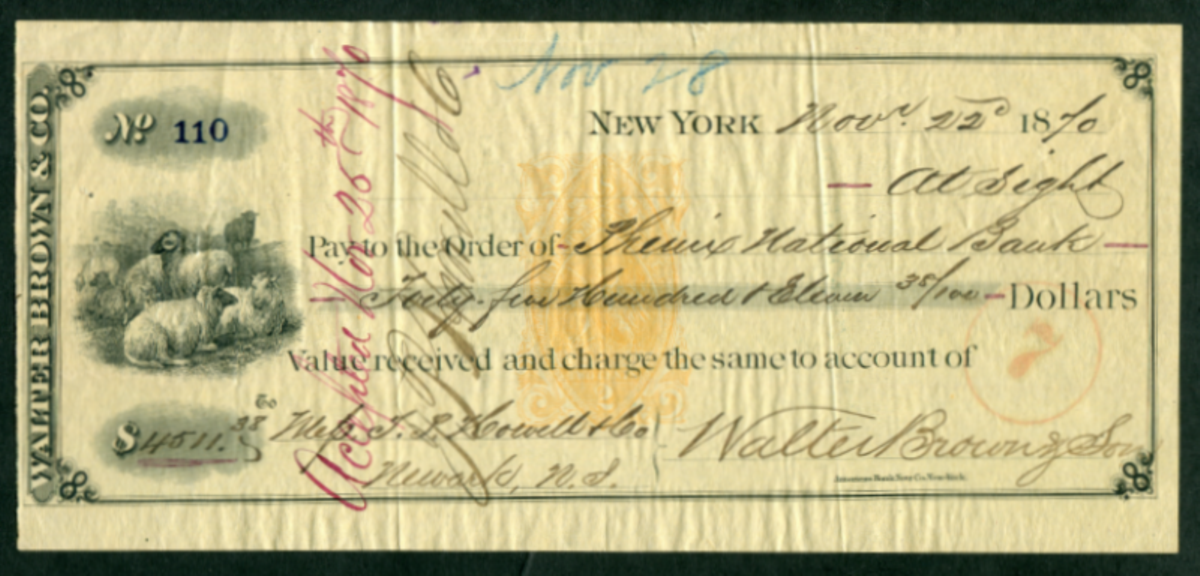 Nov 28
WALTER BROWN & CO.
No 110
NEW YORK Novr. 22d 1870
At Sight
Pay to the Order of Phenix National Bank
Forty-five Hundred & Eleven 38/100 Dollars
Value received and charge the same to account of
7
$4511.38
To Mess. T. P. Howell & Co
Newark, N.J.
Walter Brown & Son
American Bank Note Co. New York.
Accepted Nov 25th 1870